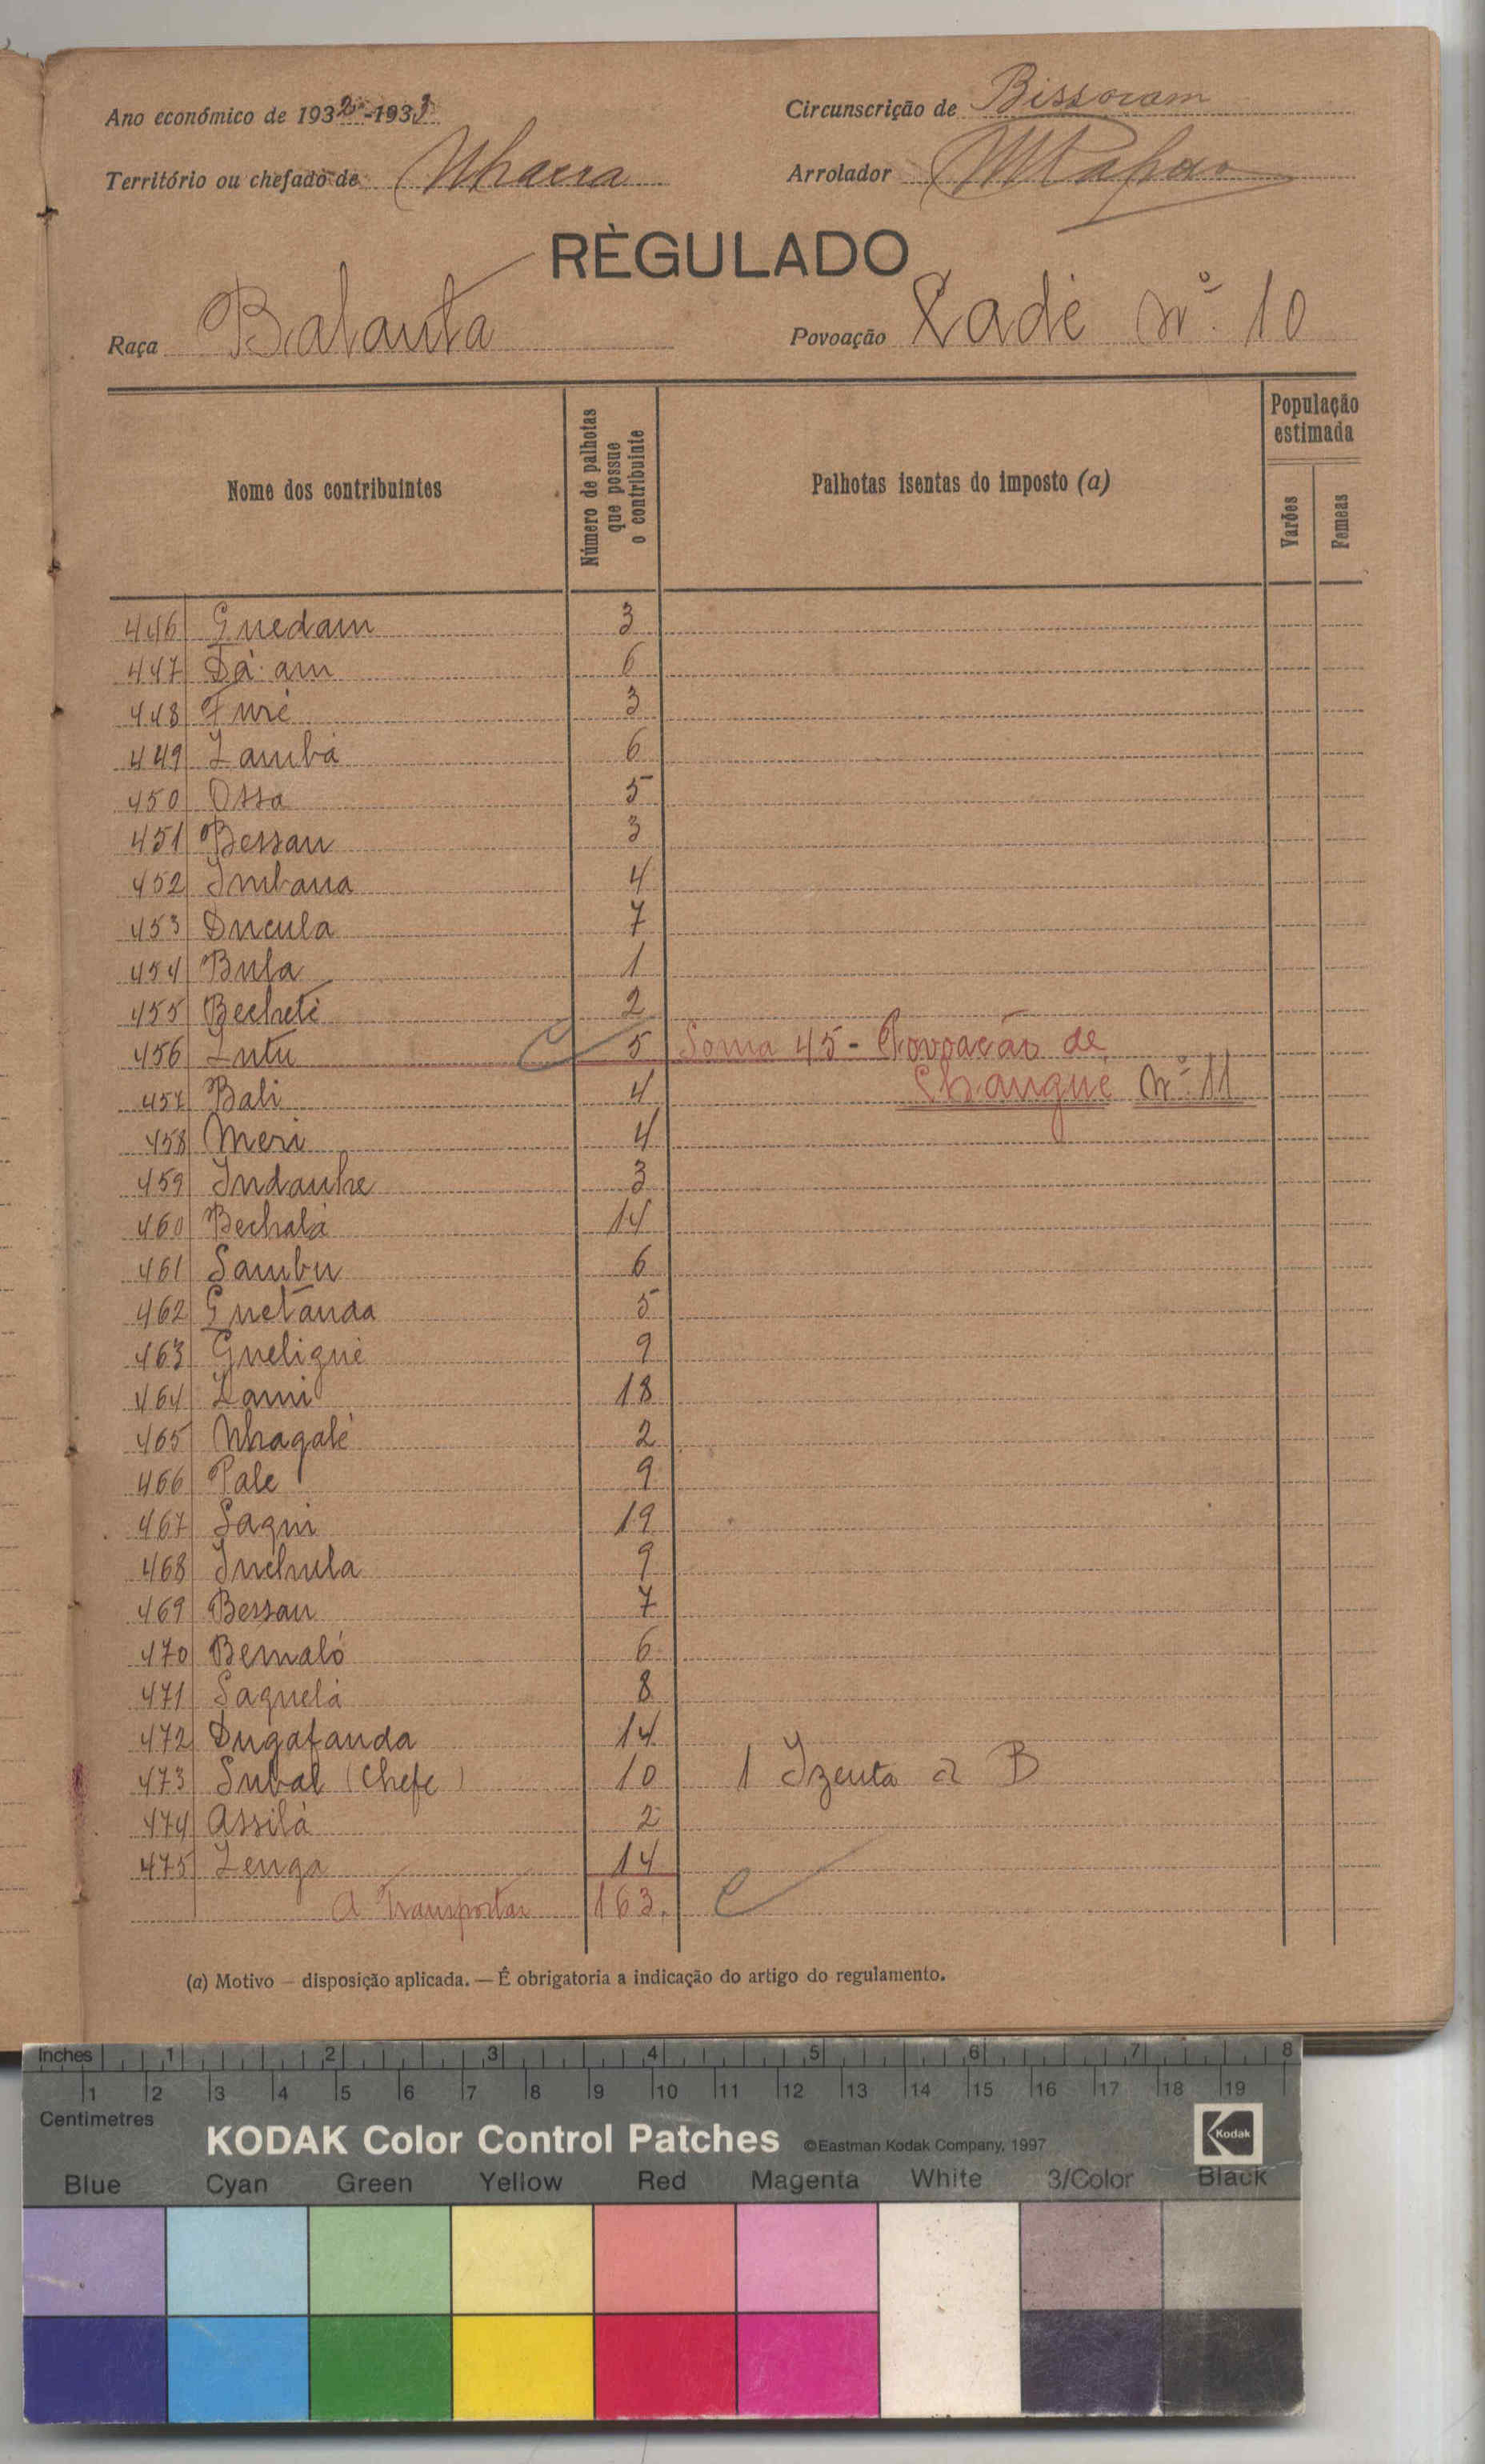 Ano económico de 1932-1933
Circunscrição de Bissoram
Território ou chefado de Nhacra
Arrolador
RÈGULADO
Raça Balanta
Povoação Ladé Nº 10
Nome dos contribuintes
Número de palhotas que possue o contribuinte
Palhotas isentas do imposto (a)
População estimada
Varões
Femeas
446 Guedam 3
447 Dá am 6
448 Furé 3
449 Zambá 6
450 Ossa 5
451 Bessau 3
452 Imbana 4
453 Ducula 7
454 Bula 1
455 Becheté 2
456 Lutu 5 Soma 45 - Povoacão de
457 Bali 4 Changue Nº 11
458 Meri 4
459 Indanhe 3
460 Bechalá 14
461 Sambu 6
462 Guetanda 5
463 Gueligué 9
464 Lami 18
465 Nhagalé 2
466 Pale 9
467 Saqui 19
468 Inchula 9
469 Bessau 7
470 Bernaló 6
471 Saquelá 8
472 Dugafanda 14
473 Subal (Chefe) 10 1 Izenta a B
474 Assilá 2
475 Zenga 14
A Transportar 163.
(a) Motivo — disposição aplicada. — É obrigatoria a indicação do artigo do regulamento.
Inches 1 2 3 4 5 6 7 8
1 2 3 4 5 6 7 8 9 10 11 12 13 14 15 16 17 18 19
Centimetres
KODAK Color Control Patches ©Eastman Kodak Company, 1997 Kodak
Blue Cyan Green Yellow Red Magenta White 3/Color Black